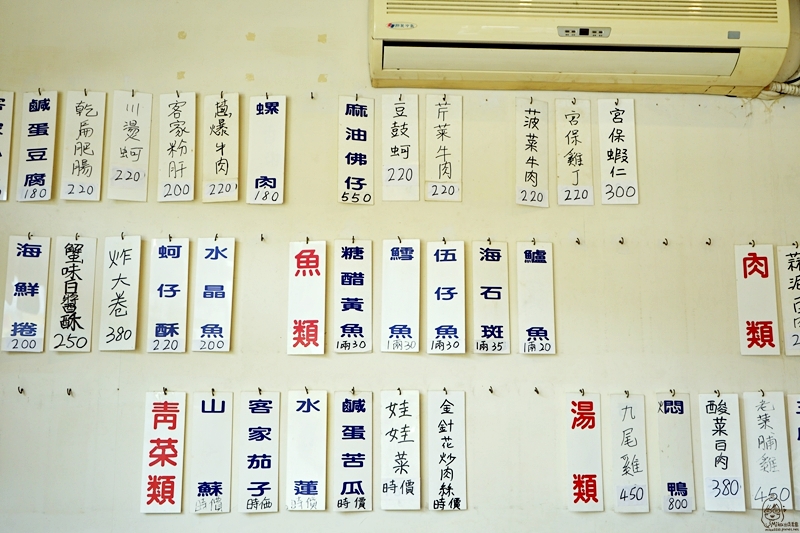 鹹蛋豆腐 180
乾扁肥腸 220
川燙蚵 220
客家粉肝 200
蔥爆牛肉 220
螺肉 180
麻油佛仔 550
豆鼓蚵 220
芹菜牛肉 220
菠菜牛肉 220
宮保雞丁 220
宮保蝦仁 300
海鮮捲 200
蟹味白醬酥 250
炸大卷 380
蚵仔酥 220
水晶魚 200
魚類
糖醋黃魚 1兩30
鱈魚 1兩30
伍仔魚 1兩30
海石斑 1兩35
鱸魚 1兩20
肉類
青菜類
山蘇 時價
客家茄子 時価
水蓮 時價
鹹蛋苦瓜 時價
娃娃菜 時價
金針花炒肉絲 時價
湯類
九尾雞 450
燜鴨 800
酸菜白肉 380
老菜脯雞 450